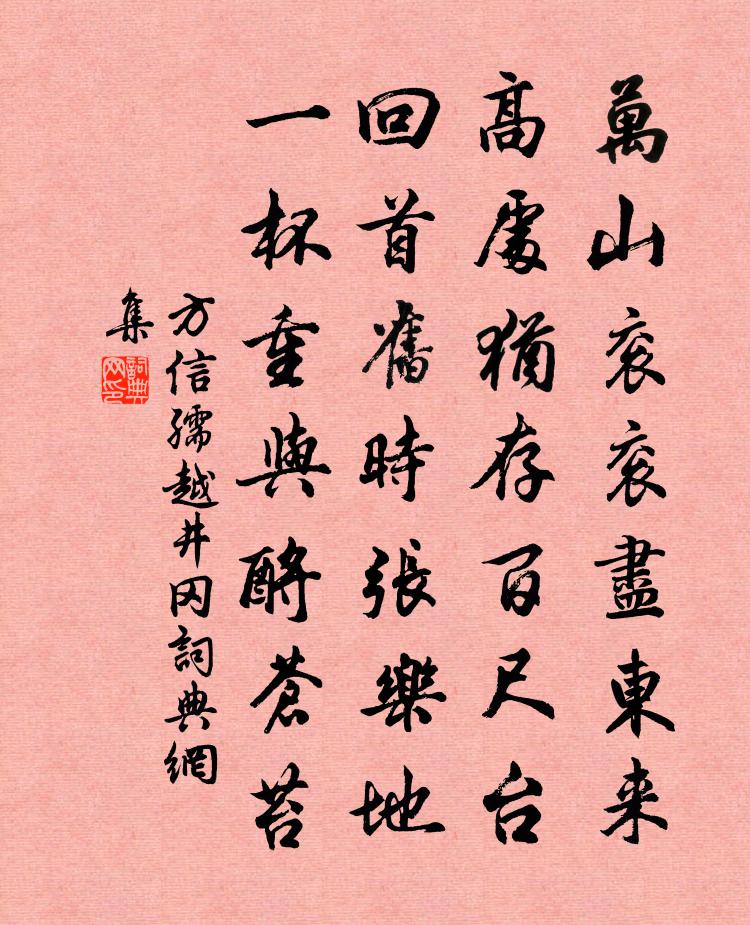 萬山衮衮盡東来
高處猶存百尺台
回首舊時張樂地
一杯重與酹蒼苔
方信孺越井冈詞典網
集
詞典网印